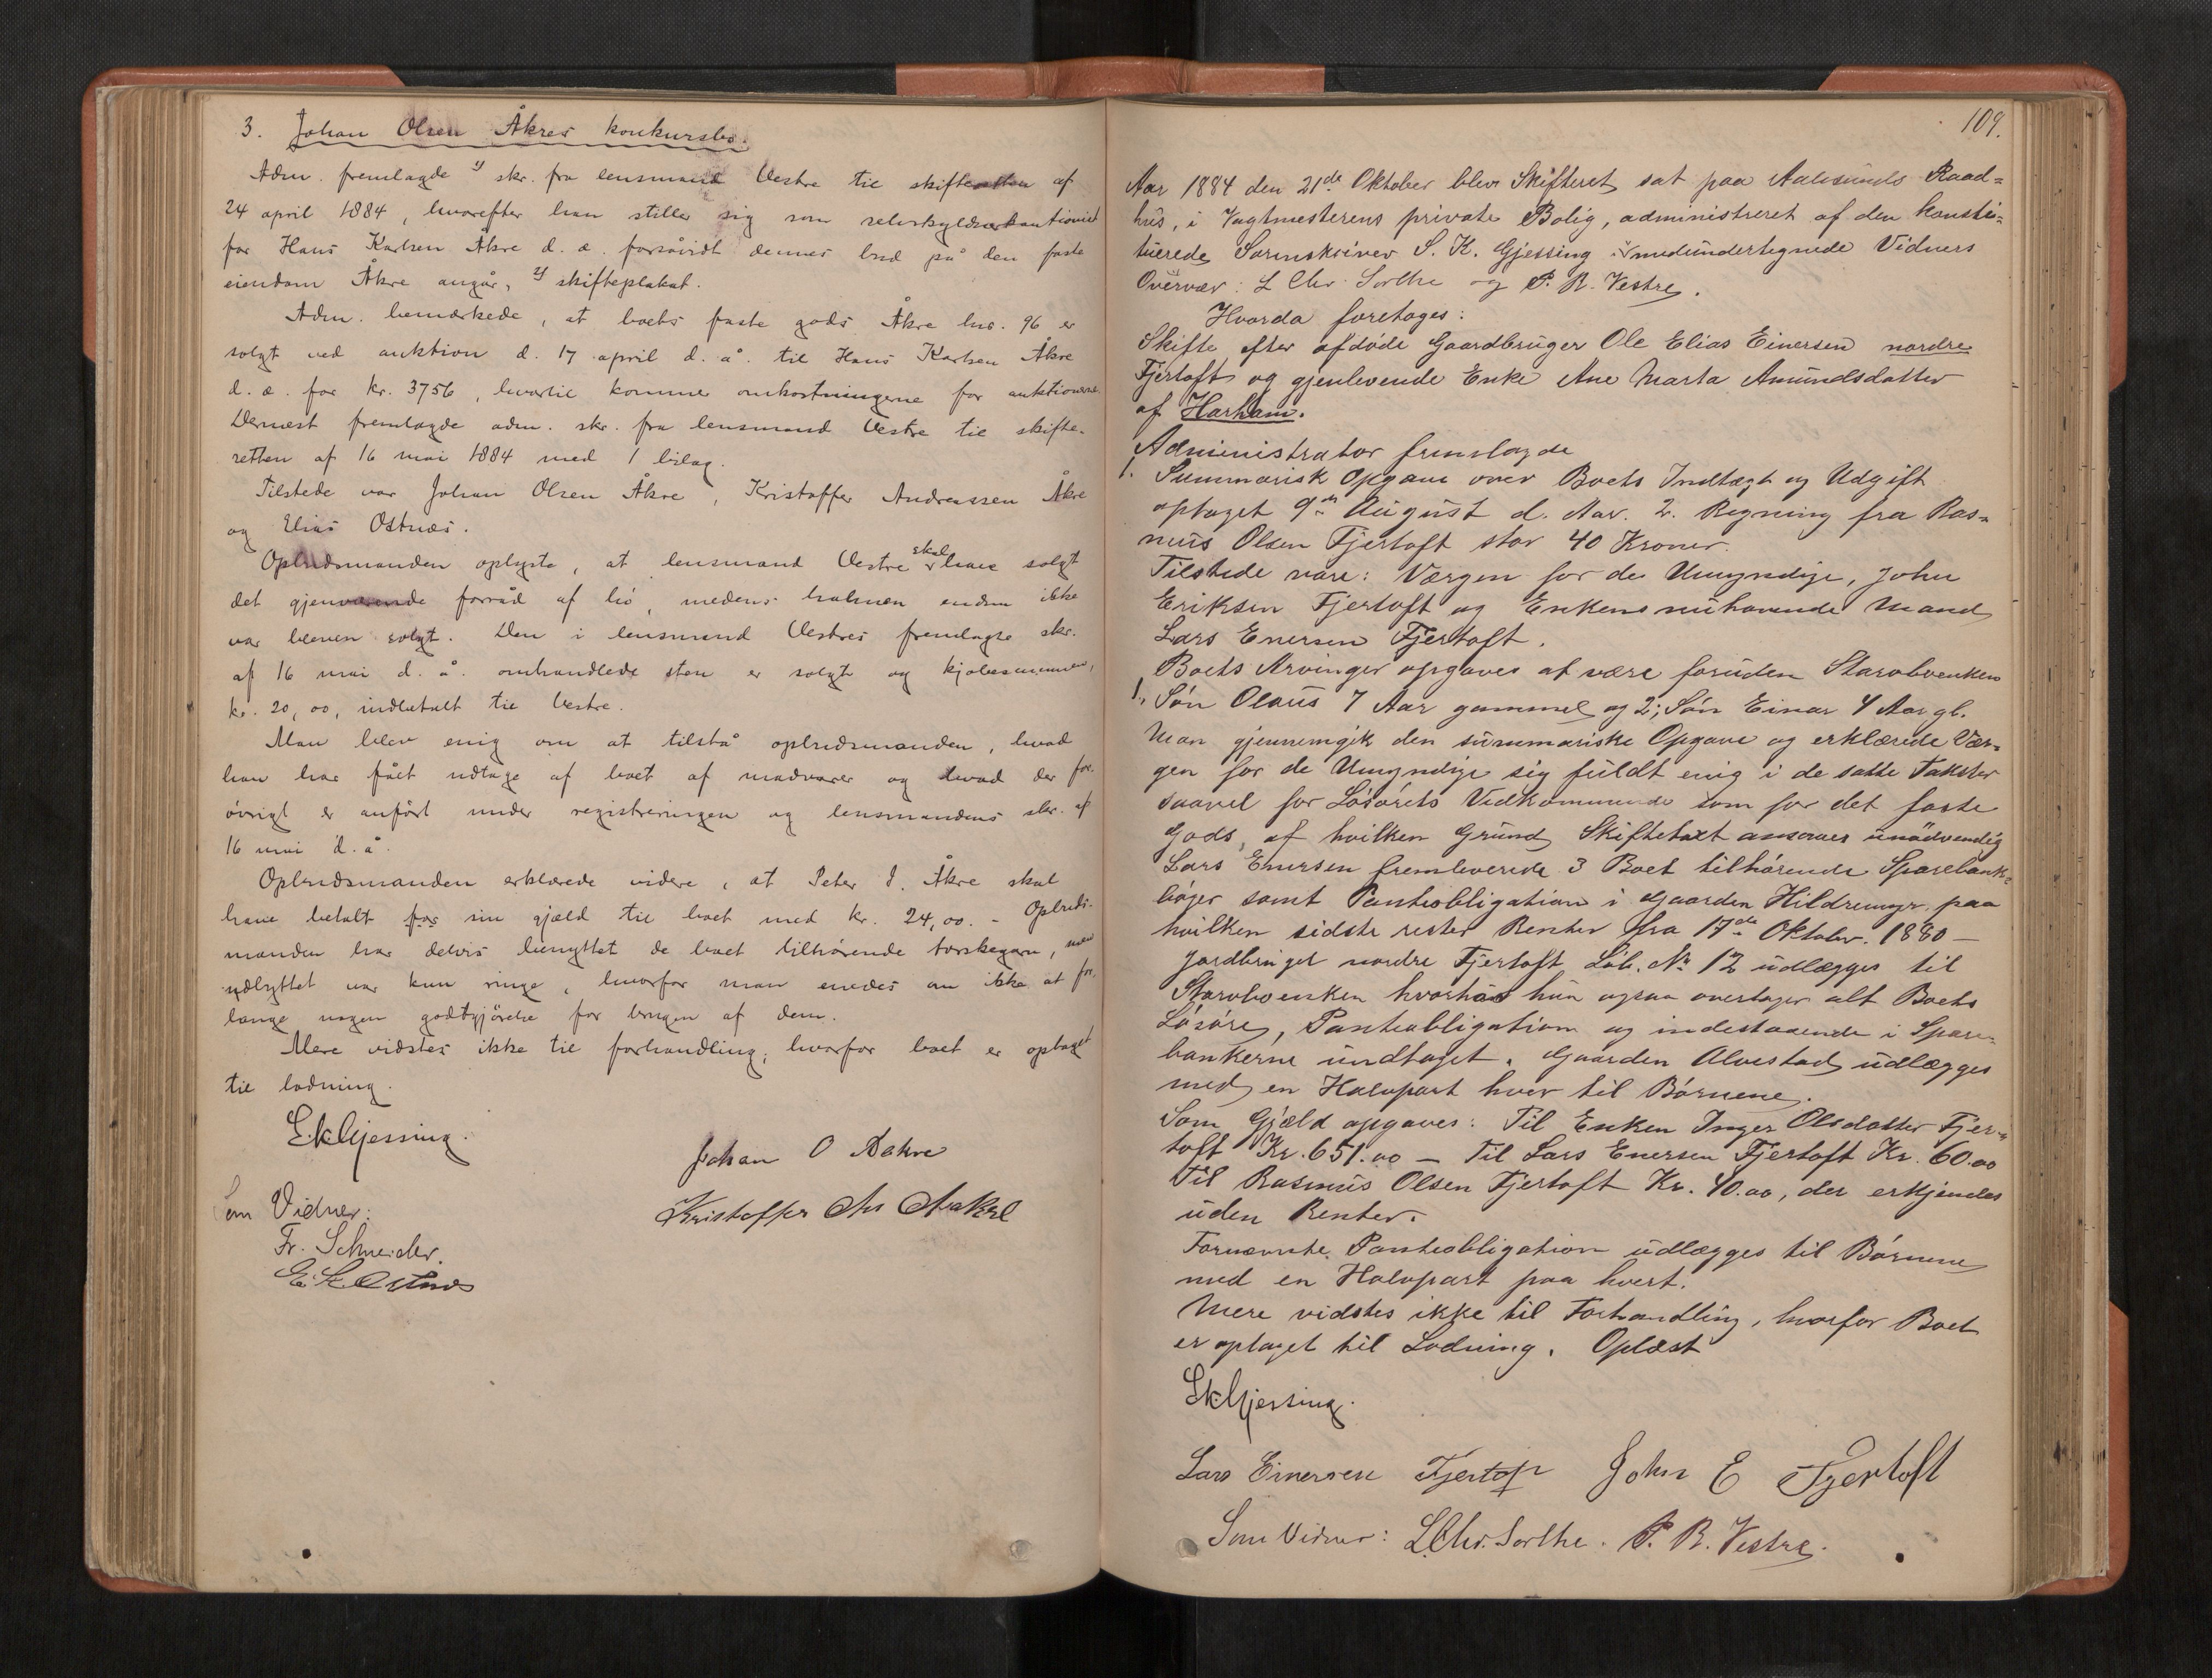 3. Johan Olsen Åkres konkursbo.
Adm. fremlagde 1) skr. fra lensmand Vestre til skifteretten af
24 april 1884, hvorefter han stiller sig som selvskyldnerkautionist
for Hans Karlsen Åkre d. æ. forsåvidt dennes bud på den faste
eiendom Åkre angår, 2) skifteplakat.
Adm. bemærkede, at boets faste gods Åkre lnr. 96 er
solgt ved auktion d. 17 april d. å. til Hans Karlsen Åkre
d. æ. for kr. 3756, hvortil kommer omkostningerne for auktionerne.
Dernæst fremlagde adm. skr. fra lensmand Vestre til skifte-
retten af 16 mai 1884 med 1 bilag.
Tilstede var Johan Olsen Åkre, Kristoffer Andreassen Åkre
og Elias Ostnæs.
Opbudsmanden oplyste, at lensmand Vestre skal have solgt
det gjenværende forråd af hø, medens halmen endnu ikke
var bleven solgt. Den i lensmand Vestres fremlagte skr.
af 16 mai d. å. omhandlede sten er solgt og kjøbesummen,
kr. 20,00, indbetalt til Vestre.
Man blev enig om at tilstå opbudsmanden, hvad
han har fået udtage af boet af madvarer og hvad der for-
øvrigt er anført under registreringen og lensmandens skr. af
16 mai d. å.
Opbudsmanden erklærede videre, at Peter J. Åkre skal
have betalt for sin gjæld til boet med kr. 24,00. - Opbuds-
manden har delvis benyttet de boet tilhørende torskegarn, men
udbyttet var kun ringe, hvorfor man enedes om ikke at for-
lange nogen godtgjørelse for brugen af dem.
Mere vidstes ikke til forhandling, hvorfor boet er optaget
til lodning.
S.K. Gjessing.
Johan O Aakre
Kristoffer An Aakre
Som Vidner:
Fr. Schneider.
E. K. Ostnæs
109.
Aar 1884 den 21de Oktober blev Skifteret sat paa Aalesunds Raad=
hus, i Vagtmesterens private Bolig, administreret af den konsti=
tuerede Sorenskriver S. K. Gjessing i medundertegnede Vidners
Overvær: L Chr. Sorthe og P. R. Vestre.
Hvorda foretoges:
Skifte efter afdøde Gaardbruger Ole Elias Einersen nordre
Fjertoft og gjenlevende Enke Ane Marta Amundsdatter
af Harham.
Administrator fremlagde
1. Summarisk Opgave over Boets Indtægt og Udgift
optaget 9de August d. Aar. 2. Regning fra Ras=
mus Olsen Fjertoft stor 40 Kroner.
Tilstede vare: Værgen for de Umyndige, John
Eriksen Fjertoft og Enkens nuhavende Mand
Lars Enersen Fjertoft.
Boets Arvinger opgaves at være foruden Stervboenken
1, Søn Olaus 7 Aar gammel og 2; Søn Einar 4 Aar gl.
Man gjennemgik den summariske Opgave og erklærede Vær=
gen for de Umyndige sig fuldt enig i de satte Takster
saavel for Løsørets Vedkommende som for det faste
Gods, af hvilken Grund Skiftetaxt ansees unødvendig
Lars Enersen fremleverede 3 Boet tilhørende Sparebank=
bøger samt Panteobligation i Gaarden Hildremyr paa
hvilken sidste rester Renter fra 17de Oktober. 1880 —
Jordbruget nordre Fjertoft Løb. No 12 udlægges til
Stervboenken hvorhos hun ogsaa overtager alt Boets
Løsøre, Panteobligation og indestaaende i Spare=
bankerne undtaget. Gaarden Alvestad udlægges
med en Halvpart hver til Børnene.
Som Gjæld opgaves: Til Enken Inger Olsdatter Fjer=
toft Kr. 651.00 — Til Lars Enersen Fjertoft Kr. 60.00
Til Rasmus Olsen Fjertoft Kr. 40.00, der erkjendes
uden Renter.
Fornævnte Panteobligation udlægges til Børnene
med en Halvpart paa hvert.
Mere vidstes ikke til Forhandling, hvorfor Boet
er optaget til Lodning. Oplæst
S.K. Gjessing.
Lars Einersen Fjertoft John E Fjertoft
Som Vidner: L.Chr. Sorthe. P. R. Vestre.